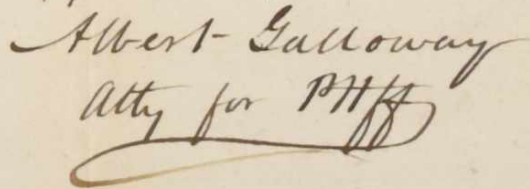 Albert Galloway
Atty for Plff